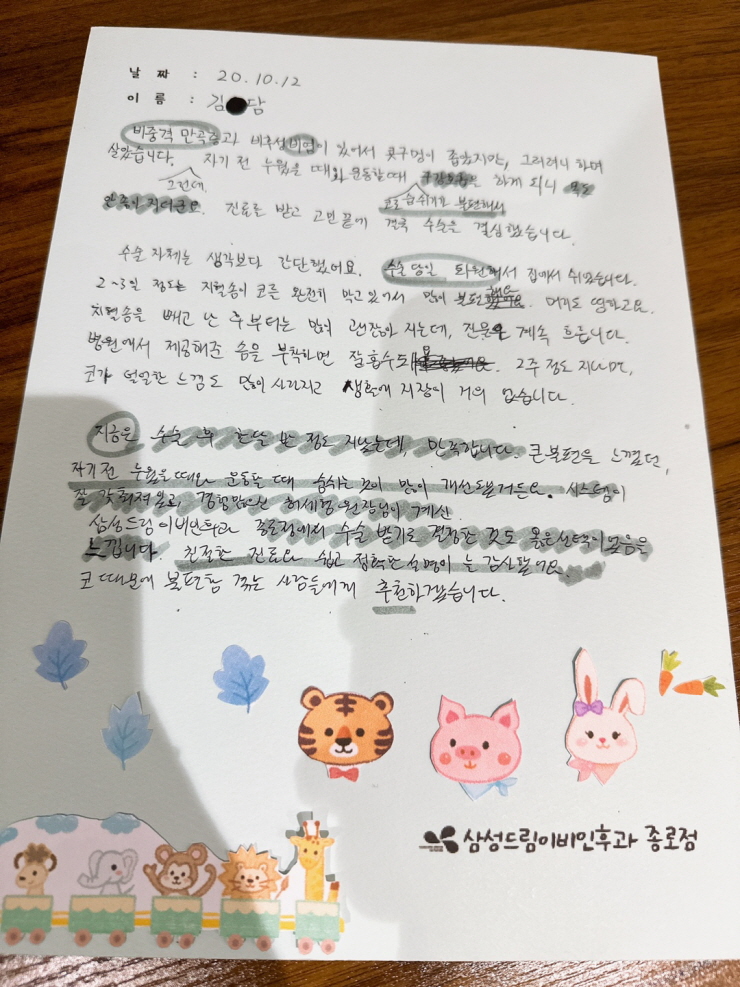 날 짜 : 20.10.12
이 름 : 김 담
비중격 만곡증과 비후성비염이 있어서 콧구멍이 좁았지만, 그러려니 하며
살았습니다. 자기 전 누웠을 때와 운동할 때 을 하게 되니
그런데, 코로 숨쉬기가 불편해서
진료를 받고 고민끝에 결국 수술을 결심했습니다.
수술 자체는 생각보다 간단했어요. 수술 당일 퇴원해서 집에서 쉬었습니다.
2~3일 정도는 지혈솜이 코를 완전히 막고 있어서 많이 불편했어요. 머리도 띵하고요.
지혈솜을 빼고 난 후부터는 많이 괜찮아 지는데, 진물은 계속 흐릅니다.
병원에서 제공해준 솜을 부착하면 잘 흡수돼요. 2주 정도 지나면,
코가 얼얼한 느낌도 많이 사라지고 생활에 지장이 거의 없습니다.
지금은 수술 후 한달 반 정도 지났는데, 만족합니다. 큰 불편을 느꼈던,
자기 전 누웠을 때와 운동할 때 숨쉬는 것이 많이 개선됐거든요. 시스템이
잘 갖춰져 있고, 경험많으신 원장님이 계신
삼성드림이비인후과 종로점에서 수술 받기로 결정한 것도 옳은선택이었음을
느낍니다. 친절한 진료와 쉽고 정확한 설명이 늘 감사했어요.
코 때문에 불편함 겪는 사람들에게 추천하겠습니다.
삼성드림이비인후과 종로점